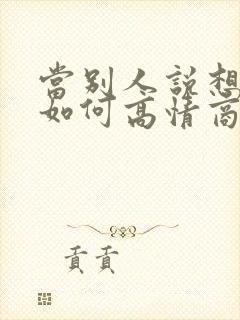 當別人說想
如何高情商
貢貢